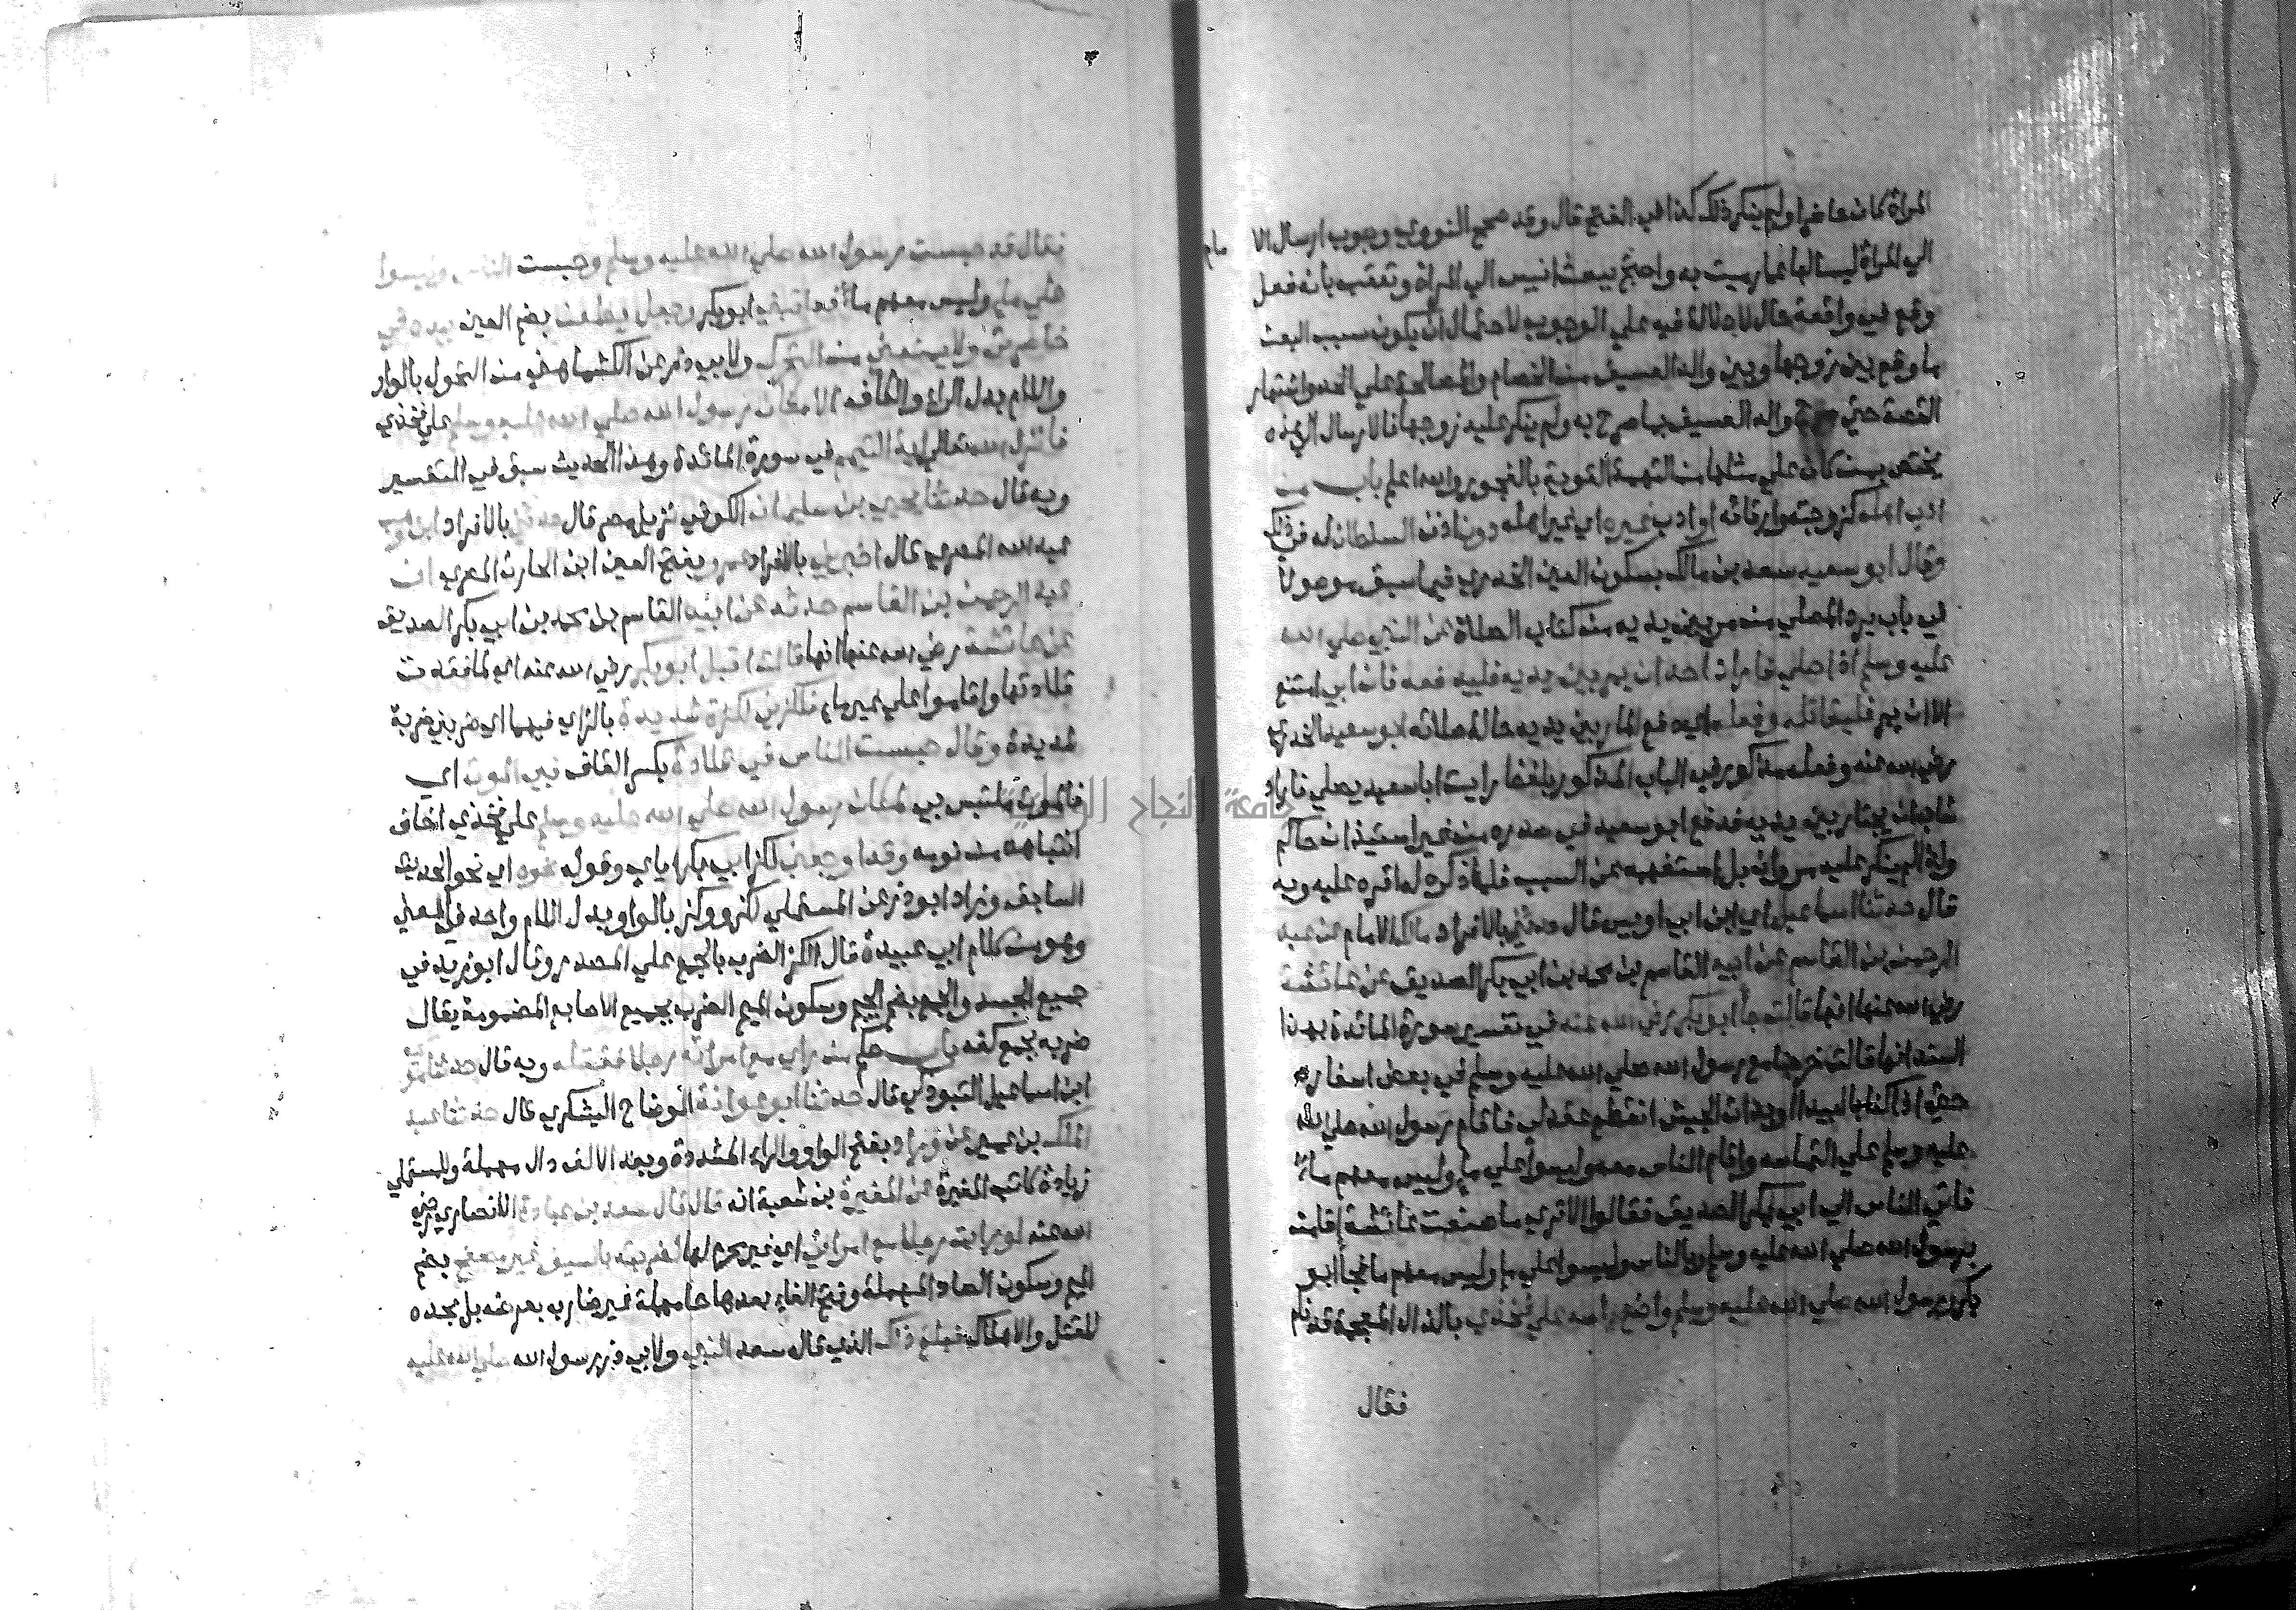 المراة كان حاضرا ولم ينكر ذلك كذا في الفتح قال وقد صحح النووي وجوب ارسال الا مام
الي المراة ليسالها عما رميت به واحتج ببعث انيس الي المراة وتعقب بانه فعل
وقع في واقعة حال لا دلالة فيه علي الوجوب لاحتمال ان يكون سبب البعث
ما وقع بين زوجها وبين والد العسيف من الخصام والمصالحة علي الحد واشتهار
القصة حتي صرح والد العسيف بما صرح به ولم ينكر عليه زوجها فالارسال الي هذه
يختص بمن كان علي مثلها من التهمة القوية بالفجور والله اعلم باب من
ادب اهله كزوجته وارقائه او ادب غيره اي غير اهله دون اذن السلطان له في ذلك
وقال ابو سعيد سعد بن مالك بسكون العين الخدري فيما سبق موصولا
في باب يرد المصلي من مر بين يديه من كتاب الصلاة عن النبي صلي الله
عليه وسلم اذا صلي فاراد احد ان يمر بين يديه فليدفعه فان ابي امتنع
الا ان يمر فليقاتله وفعله اي دفع المار بين يديه حالة صلاته ابو سعيد الخدري
رضي الله عنه وفعله مذكور في الباب المذكور بلفظ رايت ابا سعيد يصلي فاراد
شاب ان يجتاز بين يديه فدفع ابو سعيد في صدره من غير استيذان حاكم
ولذا لم ينكر عليه مروان بل استفهمه عن السبب فلما ذكره له اقره عليه وبه
قال حدثنا اسماعيل اي ابن ابي اويس قال حدثني بالافراد مالك الامام عن عبد
الرحمن بن القاسم عن ابيه القاسم بن محمد بن ابي بكر الصديق عن عائشة
رضي الله عنها انها قالت جا ابو بكر رضي الله عنه في تفسير سورة المائدة بهذا
السند انها قالت خرجنا مع رسول الله صلي الله عليه وسلم في بعض اسفاره
حتي اذا كنا بالبيدا او بذات الجيش انقطع عقد لي فاقام رسول الله صلي الله
عليه وسلم علي التماسه واقام الناس معه وليسوا علي ما وليس معهم ما
فاتي الناس الي ابي بكر الصديق فقالوا الا تري ما صنعت عائشة اقامت
برسول الله صلي الله عليه وسلم وبالناس وليسوا علي ما وليس معهم ما فجا ابو
بكر ورسول الله صلي الله عليه وسلم واضع راسه علي فخذي بالذال المعجمة قد نام
فقال
فقال قد حبست رسول الله صلي الله عليه وسلم وحبست الناس وليسوا
علي ما وليس معهم ما فعاتبني ابو بكر وجعل يطعن بضم العين بيده في
خاصرتي ولا يمنعني من التحرك ولابي ذر عن الكشميهني من التحول بالواو
واللام بدل الراء والكاف الا مكان رسول الله صلي الله عليه وسلم علي فخذي
فانزل الله تعالي اية التيمم في سورة المائدة وهذا الحديث سبق في التفسير
وبه قال حدثنا يحيي بن سليمان الكوفي نزيل مصر قال حدثني بالافراد ابن وهب
عبد الله المصري قال اخبرني بالافراد عمرو بفتح العين ابن الحارث المصري ان
عبد الرحمن بن القاسم حدثه عن ابيه القاسم بن محمد بن ابي بكر الصديق
عن عائشة رضي الله عنها انها قالت اقبل ابو بكر رضي الله عنه اي لما فقدت
قلادتها واقاموا علي غير ما فلكزني لكزة شديدة بالزاي فيهما اي ضربني ضربة
شديدة وقال حبست الناس في قلادة بكسر القاف فبي الموت اي
فالموت ملتبس بي لمكان رسول الله صلي الله عليه وسلم علي فخذي اخاف
انتباهه من نومه وقد اوجعني لكز ابي بكر اياي وقوله نحوه اي نحو الحديث
السابق وزاد ابو ذر عن المستملي لكز ووكز بالواو بدل اللام واحد في المعني
وهو من كلام ابي عبيدة قال اللكز الضرب بالجمع علي الصدر وقال ابو زيد في
جميع الجسد والجمع بضم الجيم وسكون الميم الضرب بجميع الاصابع المضمومة يقال
ضربه بجمع كفه باب حكم من راي مع امراته رجلا فقتله وبه قال حدثنا موسي
ابن اسماعيل التبوذكي قال حدثنا ابو عوانة الوضاح اليشكري قال حدثنا عبد
الملك بن عمير عن وراد بفتح الواو والراء المشددة وبعد الالف دال مهملة وللمستملي
زيادة كاتب المغيرة عن المغيرة بن شعبة انه قال قال سعد بن عبادة الانصاري رضي
الله عنه لو رايت رجلا مع امراتي اي غير محرم لها لضربته بالسيف غير مصفح بضم
الميم وسكون الصاد المهملة وفتح الفاء بعدها حا مهملة غير ضارب بعرضه بل بحده
للقتل والاهلاك فبلغ ذلك الذي قال سعد النبي ولابي ذر رسول الله صلي الله عليه
جامعة النجاح الوطنية